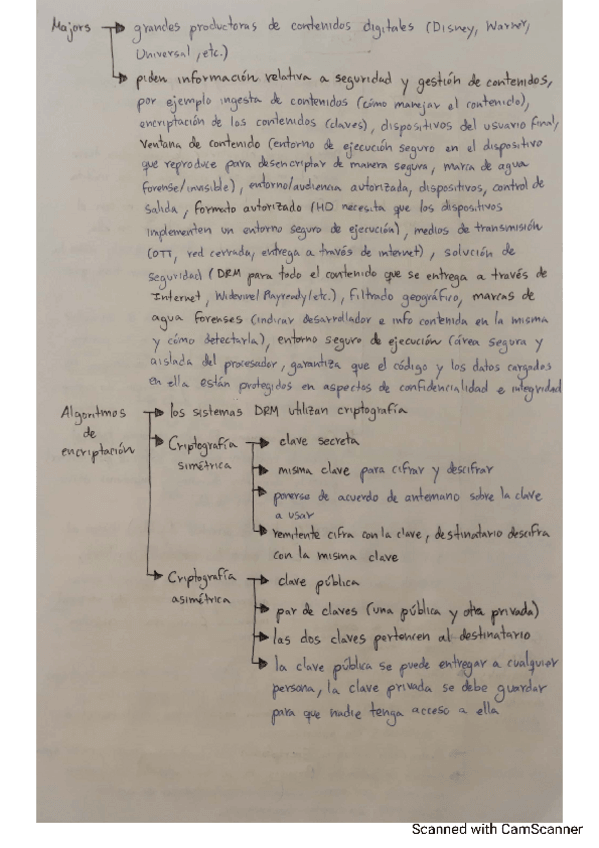 Majors → grandes productoras de contenidos digitales (Disney, Warner,
Universal, etc.)
→ piden información relativa a seguridad y gestión de contenidos,
por ejemplo ingesta de contenidos (cómo manejar el contenido),
encriptación de los contenidos (claves), dispositivos del usuario final,
ventana de contenido (entorno de ejecución seguro en el dispositivo
que reproduce para desencriptar de manera segura, marca de agua
forense/invisible), entorno/audiencia autorizada, dispositivos, control de
salida, formato autorizado (HD necesita que los dispositivos
implementen un entorno seguro de ejecución), medios de transmisión
(OTT, red cerrada, entrega a través de internet), solución de
seguridad (DRM para todo el contenido que se entrega a través de
Internet, Widevine/Playready/etc.), filtrado geográfico, marcas de
agua forenses (indicar desarrollador e info contenida en la misma
y cómo detectarla), entorno seguro de ejecución (área segura y
aislada del procesador, garantiza que el código y los datos cargados
en ella están protegidos en aspectos de confidencialidad e integridad
Algoritmos → los sistemas DRM utilizan criptografía
de
encriptación
→ Criptografía → clave secreta
simétrica
→ misma clave para cifrar y descifrar
→ ponerse de acuerdo de antemano sobre la clave
a usar
→ remitente cifra con la clave, destinatario descifra
con la misma clave
→ Criptografía → clave pública
asimétrica
→ par de claves (una pública y otra privada)
→ las dos claves pertencen al destinatario
→ la clave pública se puede entregar a cualquier
persona, la clave privada se debe guardar
para que nadie tenga acceso a ella
Scanned with CamScanner